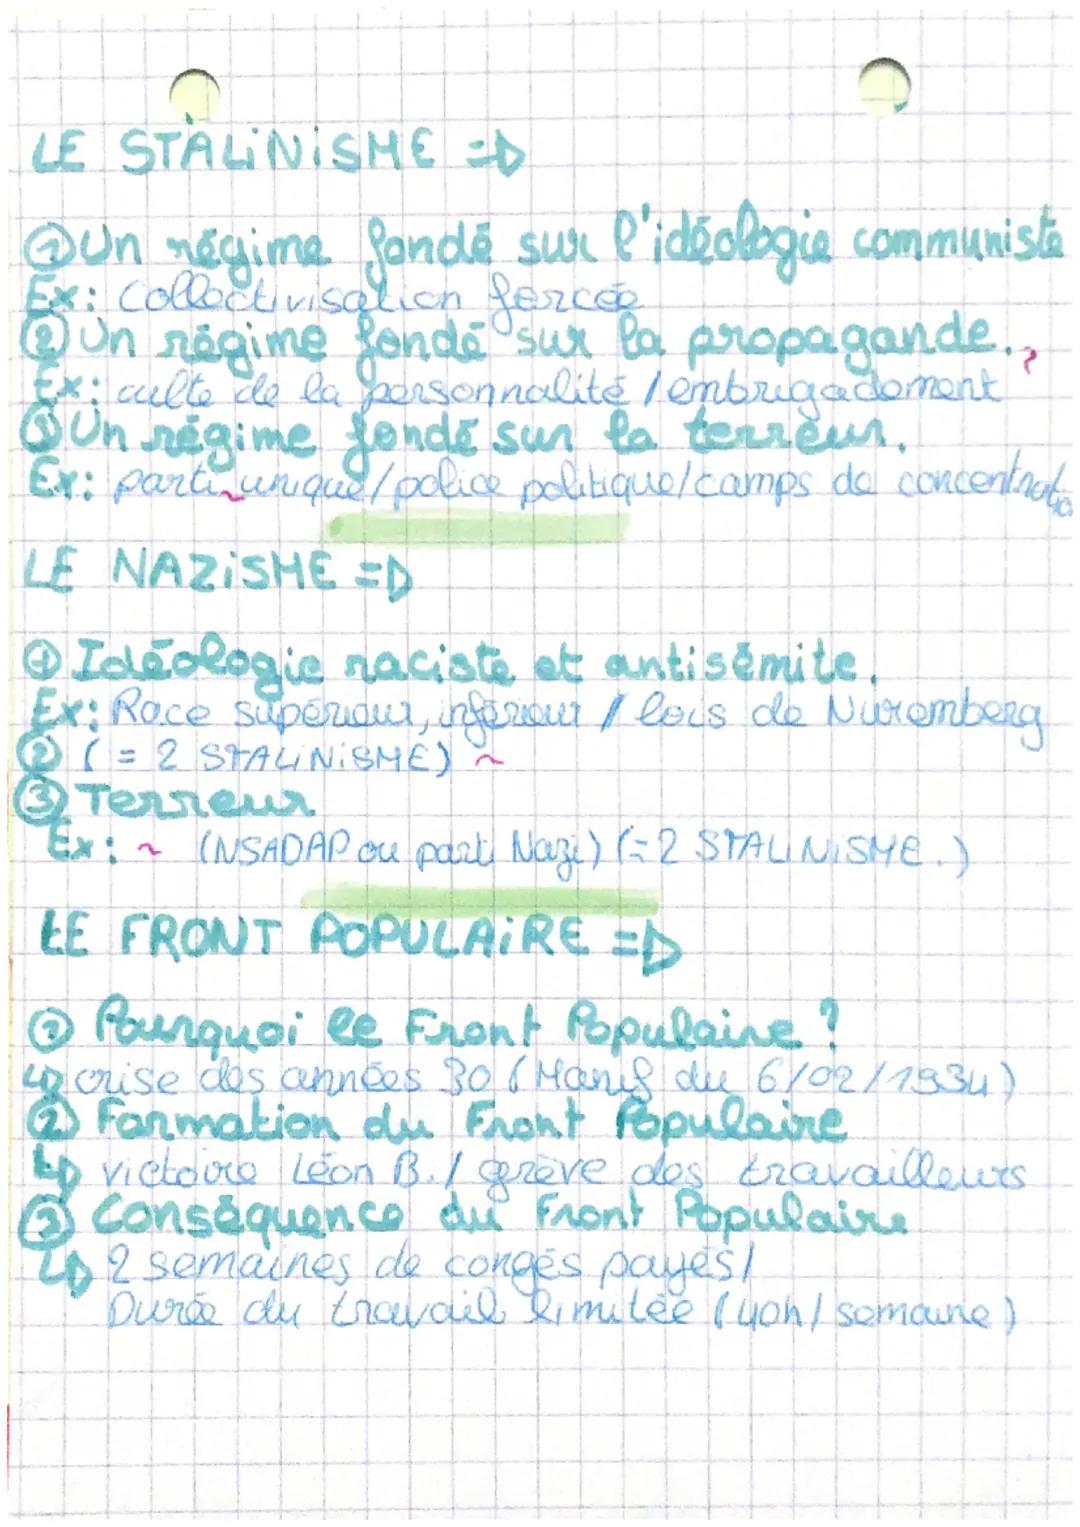 LE STALINISME =>
① Un régime fondé sur l'idéologie communiste
Ex: Collectivisation forcée
② Un régime fondé sur la propagande.
Ex: culte de la personnalité / embrigadement
③ Un régime fondé sur la terreur.
Ex: parti unique / police politique / camps de concentratio
LE NAZISME =>
① Idéologie raciste et antisémite.
Ex: Race supérieur, inférieur / lois de Nuremberg
② (= 2 STALINISME) ~
③ Terreur
Ex: ~ (NSADAP ou parti Nazi) (= 2 STALINISME.)
LE FRONT POPULAIRE =>
① Pourquoi le Front Populaire ?
↳ crise des années 30 (Manif du 6/02/1934)
② Formation du Front Populaire
↳ victoire Léon B. / grève des travailleurs
③ Conséquence du Front Populaire
↳ 2 semaines de congés payés /
Durée du travail limitée (40h / semaine)